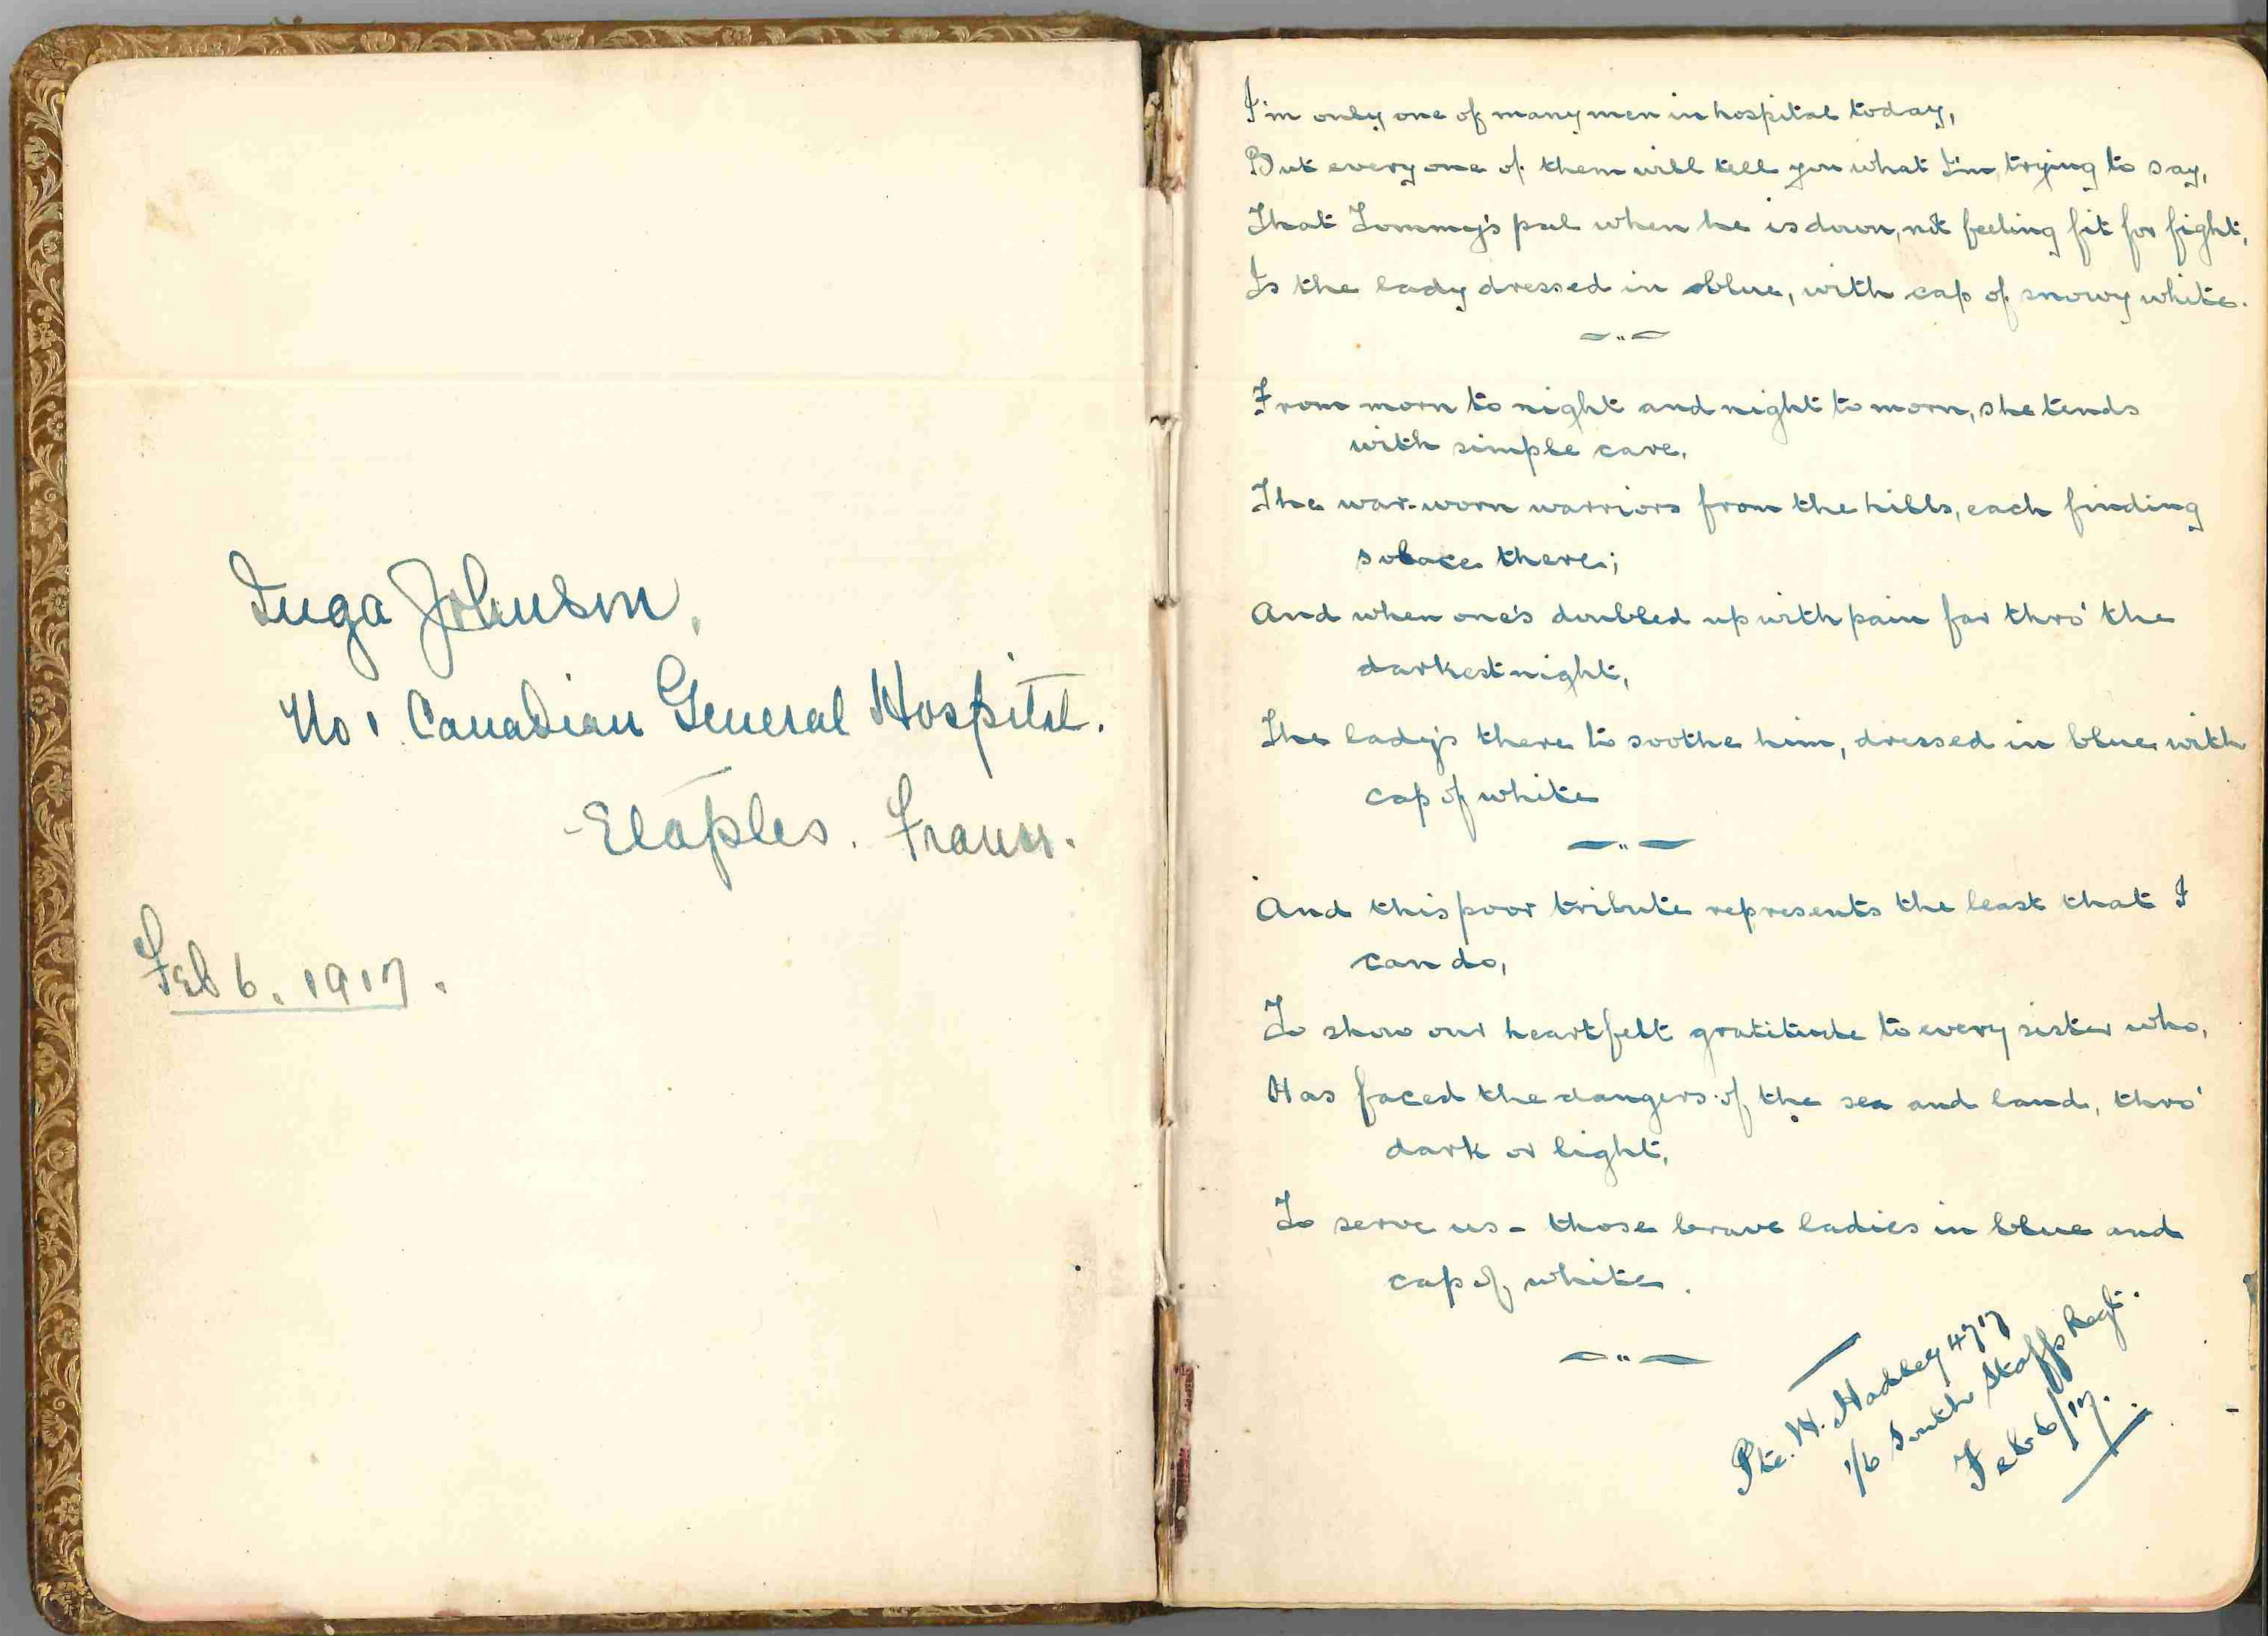 Inga Johnson,
No 1 Canadian General Hospital.
Etaples. France.
Feb 6. 1917.
I'm only one of many men in hospital today,
But every one of them will tell you what I'm trying to say,
That Tommy's pal when he is down, not feeling fit for fight,
Is the lady dressed in blue, with cap of snowy white.
From morn to night and night to morn, she tends
with simple care,
The war-worn warriors from the hills, each finding
solace there;
And when one's doubled up with pain far thro' the
darkest night,
The lady's there to soothe him, dressed in blue with
cap of white
And this poor tribute represents the least that I
can do,
To show our heartfelt gratitude to every sister who,
Has faced the dangers of the sea and land, thro'
dark or light,
To serve us - those brave ladies in blue and
cap of white.
Pte. W. Hadley 4717
1/6 South Staffs Regt.
Feb 6/17.